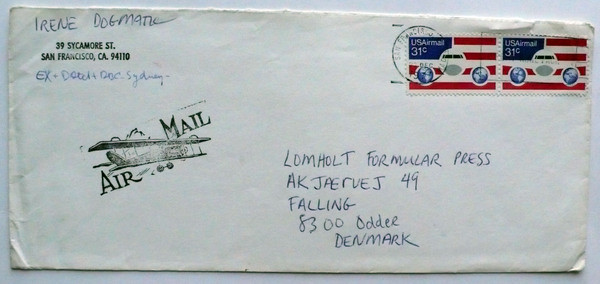 IRENE DOGMATIC
39 SYCAMORE ST.
SAN FRANCISCO, CA. 94110
USAirmail
31c
USAirmail
31c
DEC
AIR MAIL
LOMHOLT FORMULAR PRESS
AKJAERVEJ 49
FALLING
8300 Odder
DENMARK